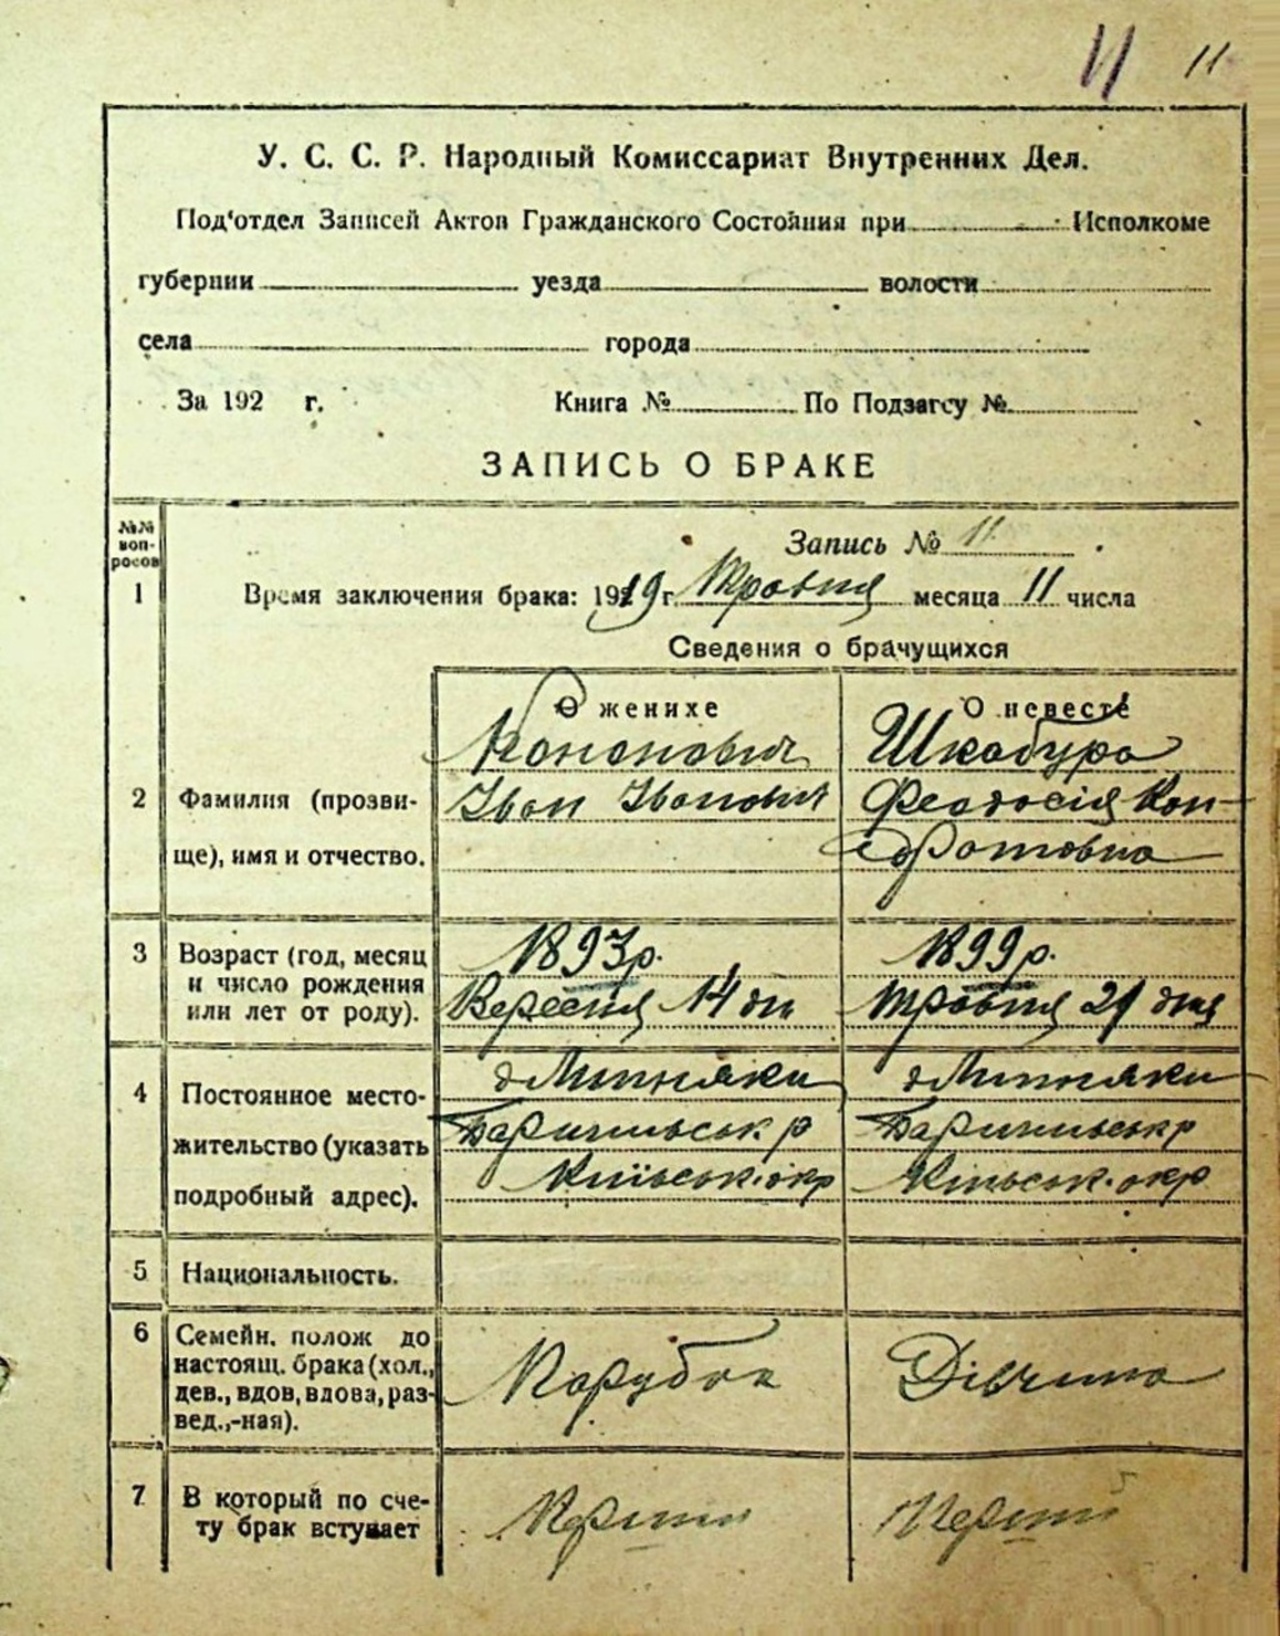 11 11
У. С. С. Р. Народный Комиссариат Внутренних Дел.
Под'отдел Записей Актов Гражданского Состояния при Исполкоме
губернии уезда волости
села города
За 192 г. Книга № По Подзагсу №
ЗАПИСЬ О БРАКЕ
№№ вопросов
Запись № 11
1 Время заключения брака: 1919 г. Травня месяца 11 числа
Сведения о брачущихся
О женихе О невесте
Кононович Шкабура
2 Фамилия (прозви- Іван Іванович Феодосія Кон-
ще), имя и отчество. дратовна
3 Возраст (год, месяц 1893 р. 1899 р.
и число рождения Вересня 14 дн Травня 29 дня
или лет от роду).
4 Постоянное место- Липняки Липняки
жительство (указать Баришпольськ р Баришпольськ р
подробный адрес). Київськ. окр Київськ. окр
5 Национальность.
6 Семейн. полож до
настоящ. брака (хол., Парубок Дівчина
дев., вдов, вдова, раз-
вед.,-ная).
7 В который по сче- Перший Перший
ту брак вступает